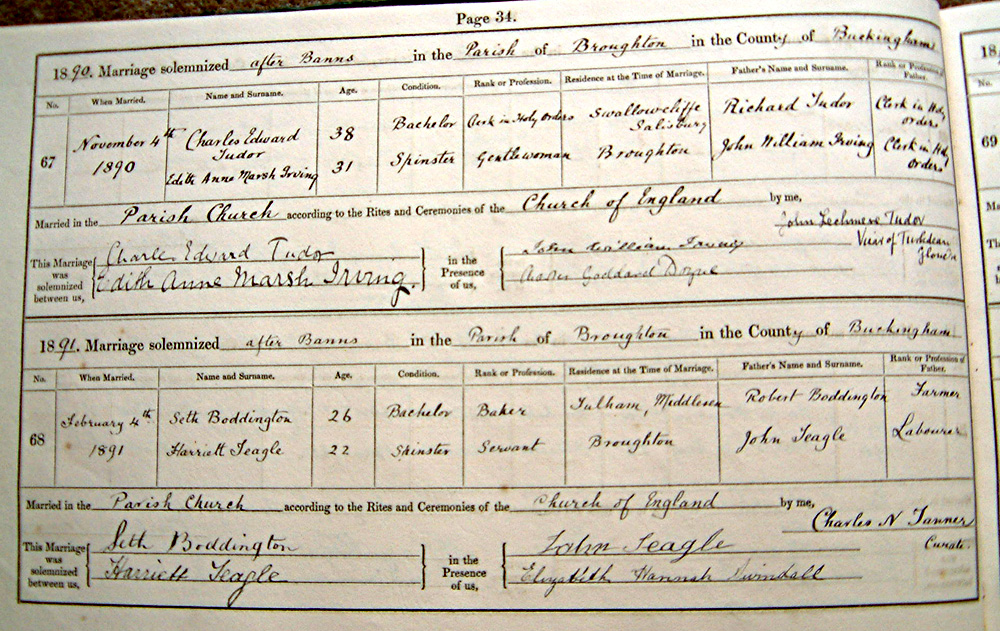 Page 34.
1890. Marriage solemnized after Banns in the Parish of Broughton in the County of Buckingham
No. When Married. Name and Surname. Age. Condition. Rank or Profession. Residence at the Time of Marriage. Father's Name and Surname. Rank or Profession of Father.
67 November 4th 1890 Charles Edward Tudor 38 Bachelor Clerk in Holy Orders Swallowcliffe Salisbury Richard Tudor Clerk in Holy Orders
Edith Anne Marsh Irving 31 Spinster Gentlewoman Broughton John William Irving Clerk in Holy Orders
Married in the Parish Church according to the Rites and Ceremonies of the Church of England by me,
John Lechmere Tudor
Vicar of
This Marriage was solemnized between us, Charles Edward Tudor
Edith Anne Marsh Irving.
in the Presence of us, John William Irving
Goddard Doyne
1891. Marriage solemnized after Banns in the Parish of Broughton in the County of Buckingham
No. When Married. Name and Surname. Age. Condition. Rank or Profession. Residence at the Time of Marriage. Father's Name and Surname. Rank or Profession of Father.
68 February 4th 1891 Seth Boddington 26 Bachelor Baker Fulham, Middlesex Robert Boddington Farmer
Harriett Teagle 22 Spinster Servant Broughton John Teagle Labourer
Married in the Parish Church according to the Rites and Ceremonies of the Church of England by me,
Charles N Tanner
Curate.
This Marriage was solemnized between us, Seth Boddington
Harriett Teagle
in the Presence of us, John Teagle
Elizabeth Hannah Swindall
18
No.
69